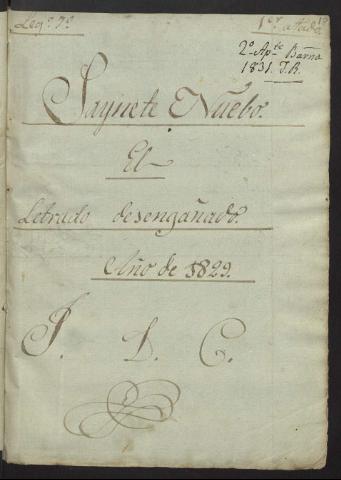 Leg.º 7º 1.er atado
2º Ap.te Barna
1831. J. R.
Saynete Nuebo.
El
Letrado desengañado.
Año de 1829.
J. D. C.